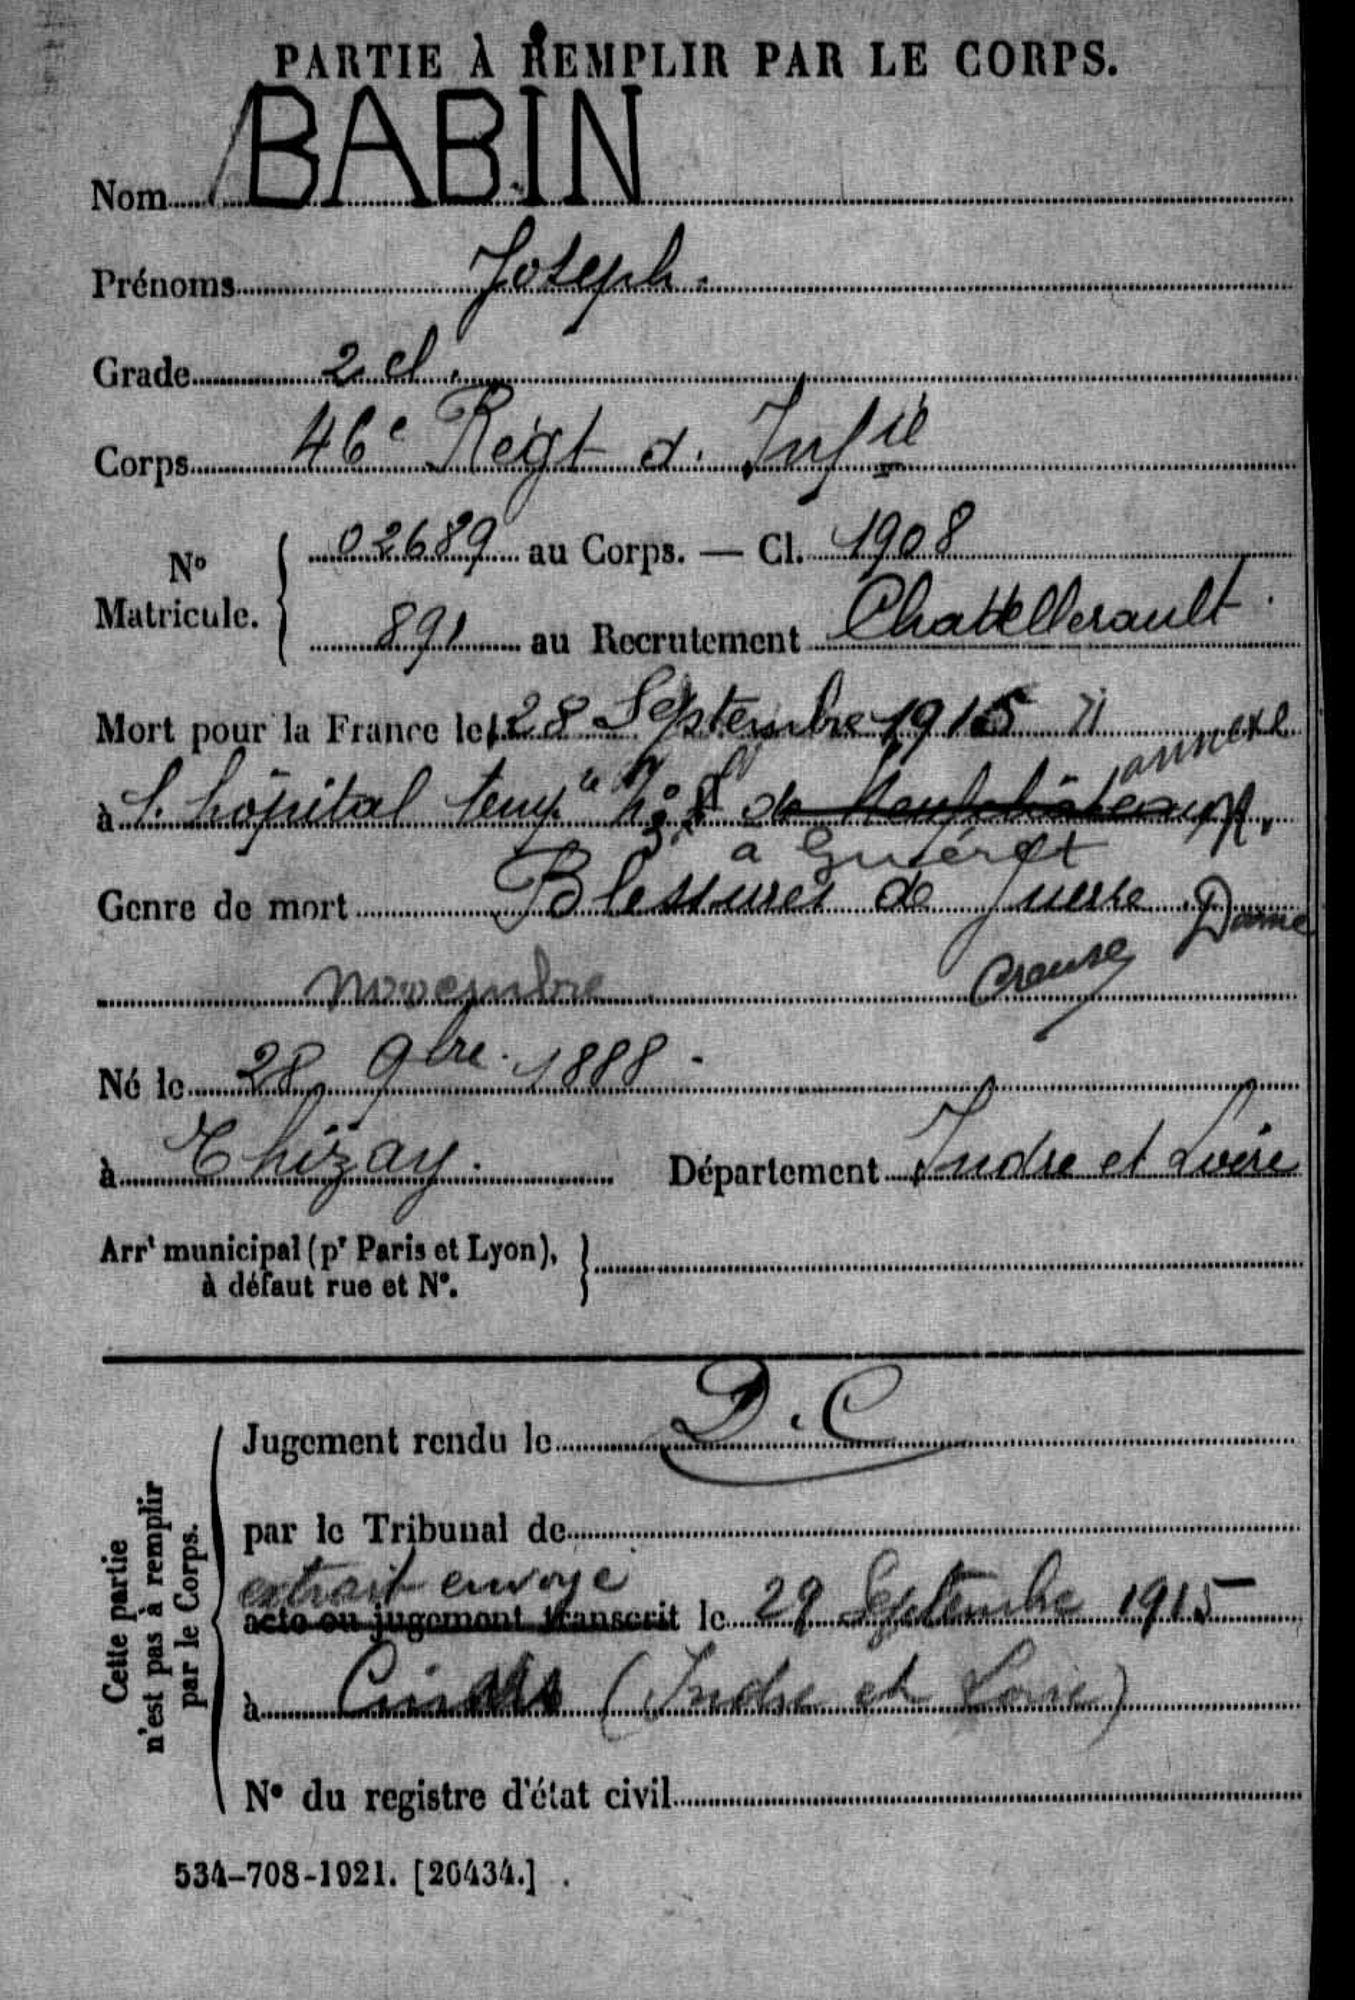 PARTIE À REMPLIR PAR LE CORPS.
Nom BABIN
Prénoms Joseph.
Grade 2 cl.
Corps 46e Régt d. Infie
No Matricule. { 02689 au Corps. — Cl. 1908
891 au Recrutement Chattellerault.
Mort pour la France le 28 Septembre 1915
annexe
à l. hôpital temp
à Guéret
Genre de mort Blessures de guerre
Dame
novembre Creuse
Né le 28 9bre. 1888.
à Thizay. Département Indre et Loire
Arrt municipal (pr Paris et Lyon),
à défaut rue et No. }
Cette partie
n'est pas à remplir
par le Corps.
Jugement rendu le D.C
par le Tribunal de
extrait envoyé
acte ou jugement transcrit le 29 Septembre 1915
à (Indre et Loire)
No du registre d'état civil
534-708-1921. [26434.]